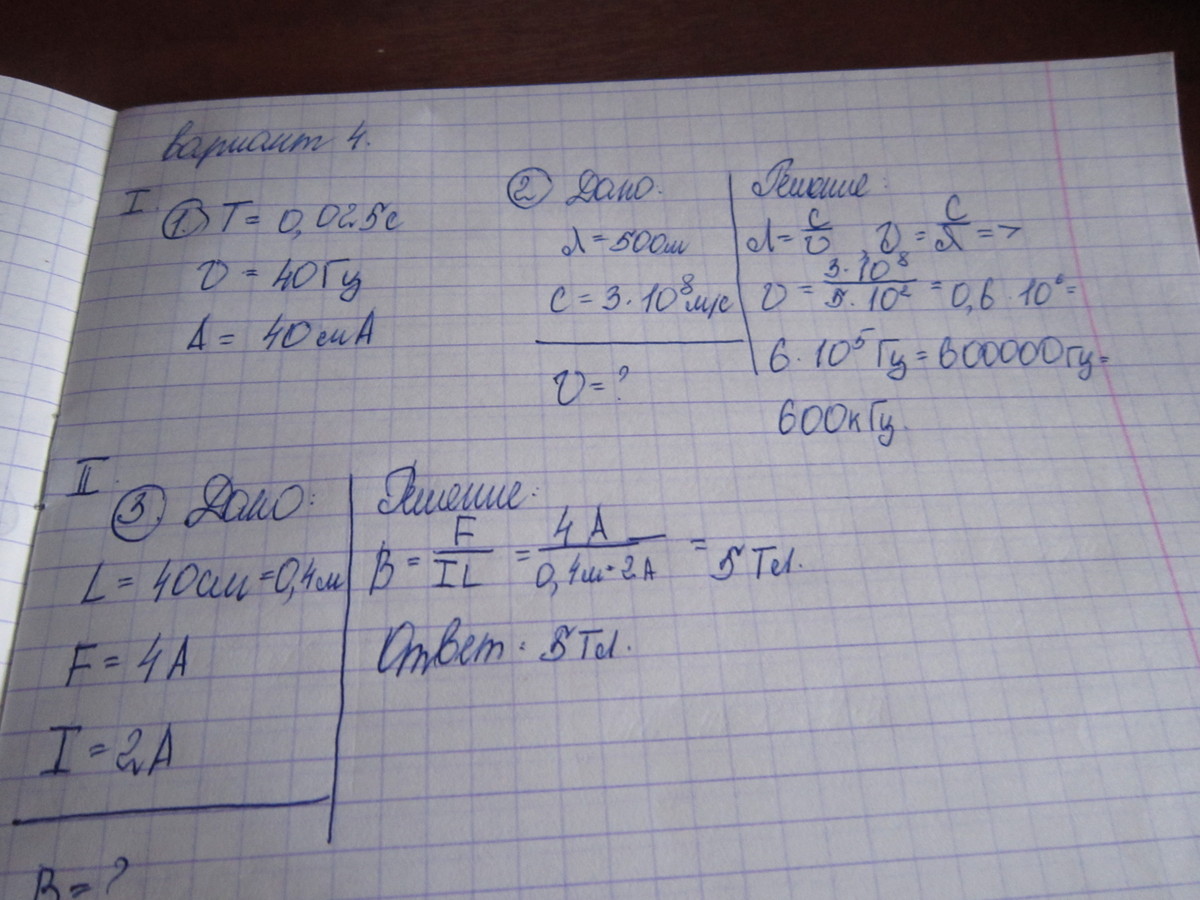 вариант 4.
I.
① T = 0,025с
ν = 40Гц
A = 40 мА
② Дано:
λ = 500м
C = 3 · 10⁸ м/с
ν = ?
Решение:
λ = C/ν, ν = C/λ =>
ν = 3·10⁸/5·10² = 0,6 · 10⁶ =
6 · 10⁵ Гц = 600000Гц =
600кГц.
II.
③ Дано:
L = 40см = 0,4м
F = 4А
I = 2А
B = ?
Решение:
B = F/IL = 4 А/0,4м · 2А = 5 Тл.
Ответ: 5Тл.